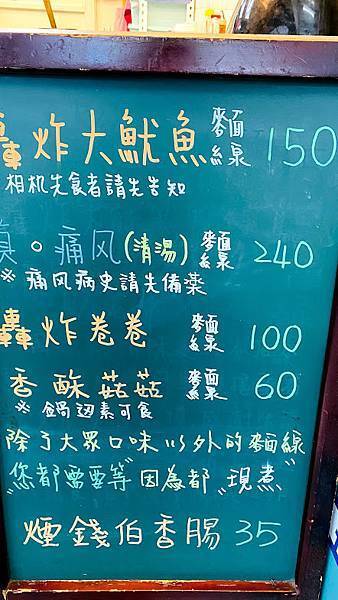 轟炸大魷魚 麵線 150
相机先食者請先告知
真。痛风(清湯) 麵線 240
※痛风病史請先備藥
轟炸卷卷 麵線 100
香酥菇菇 麵線 60
※鍋边素可食
除了大眾口味以外的麵線
"您都需要等"因為都"現煮"
煙錢伯香腸 35